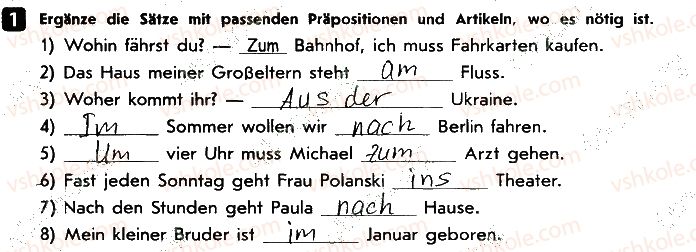 1 Ergänze die Sätze mit passenden Präpositionen und Artikeln, wo es nötig ist.
1) Wohin fährst du? — Zum Bahnhof, ich muss Fahrkarten kaufen.
2) Das Haus meiner Großeltern steht am Fluss.
3) Woher kommt ihr? — Aus der Ukraine.
4) Im Sommer wollen wir nach Berlin fahren.
5) Um vier Uhr muss Michael zum Arzt gehen.
6) Fast jeden Sonntag geht Frau Polanski ins Theater.
7) Nach den Stunden geht Paula nach Hause.
8) Mein kleiner Bruder ist im Januar geboren.